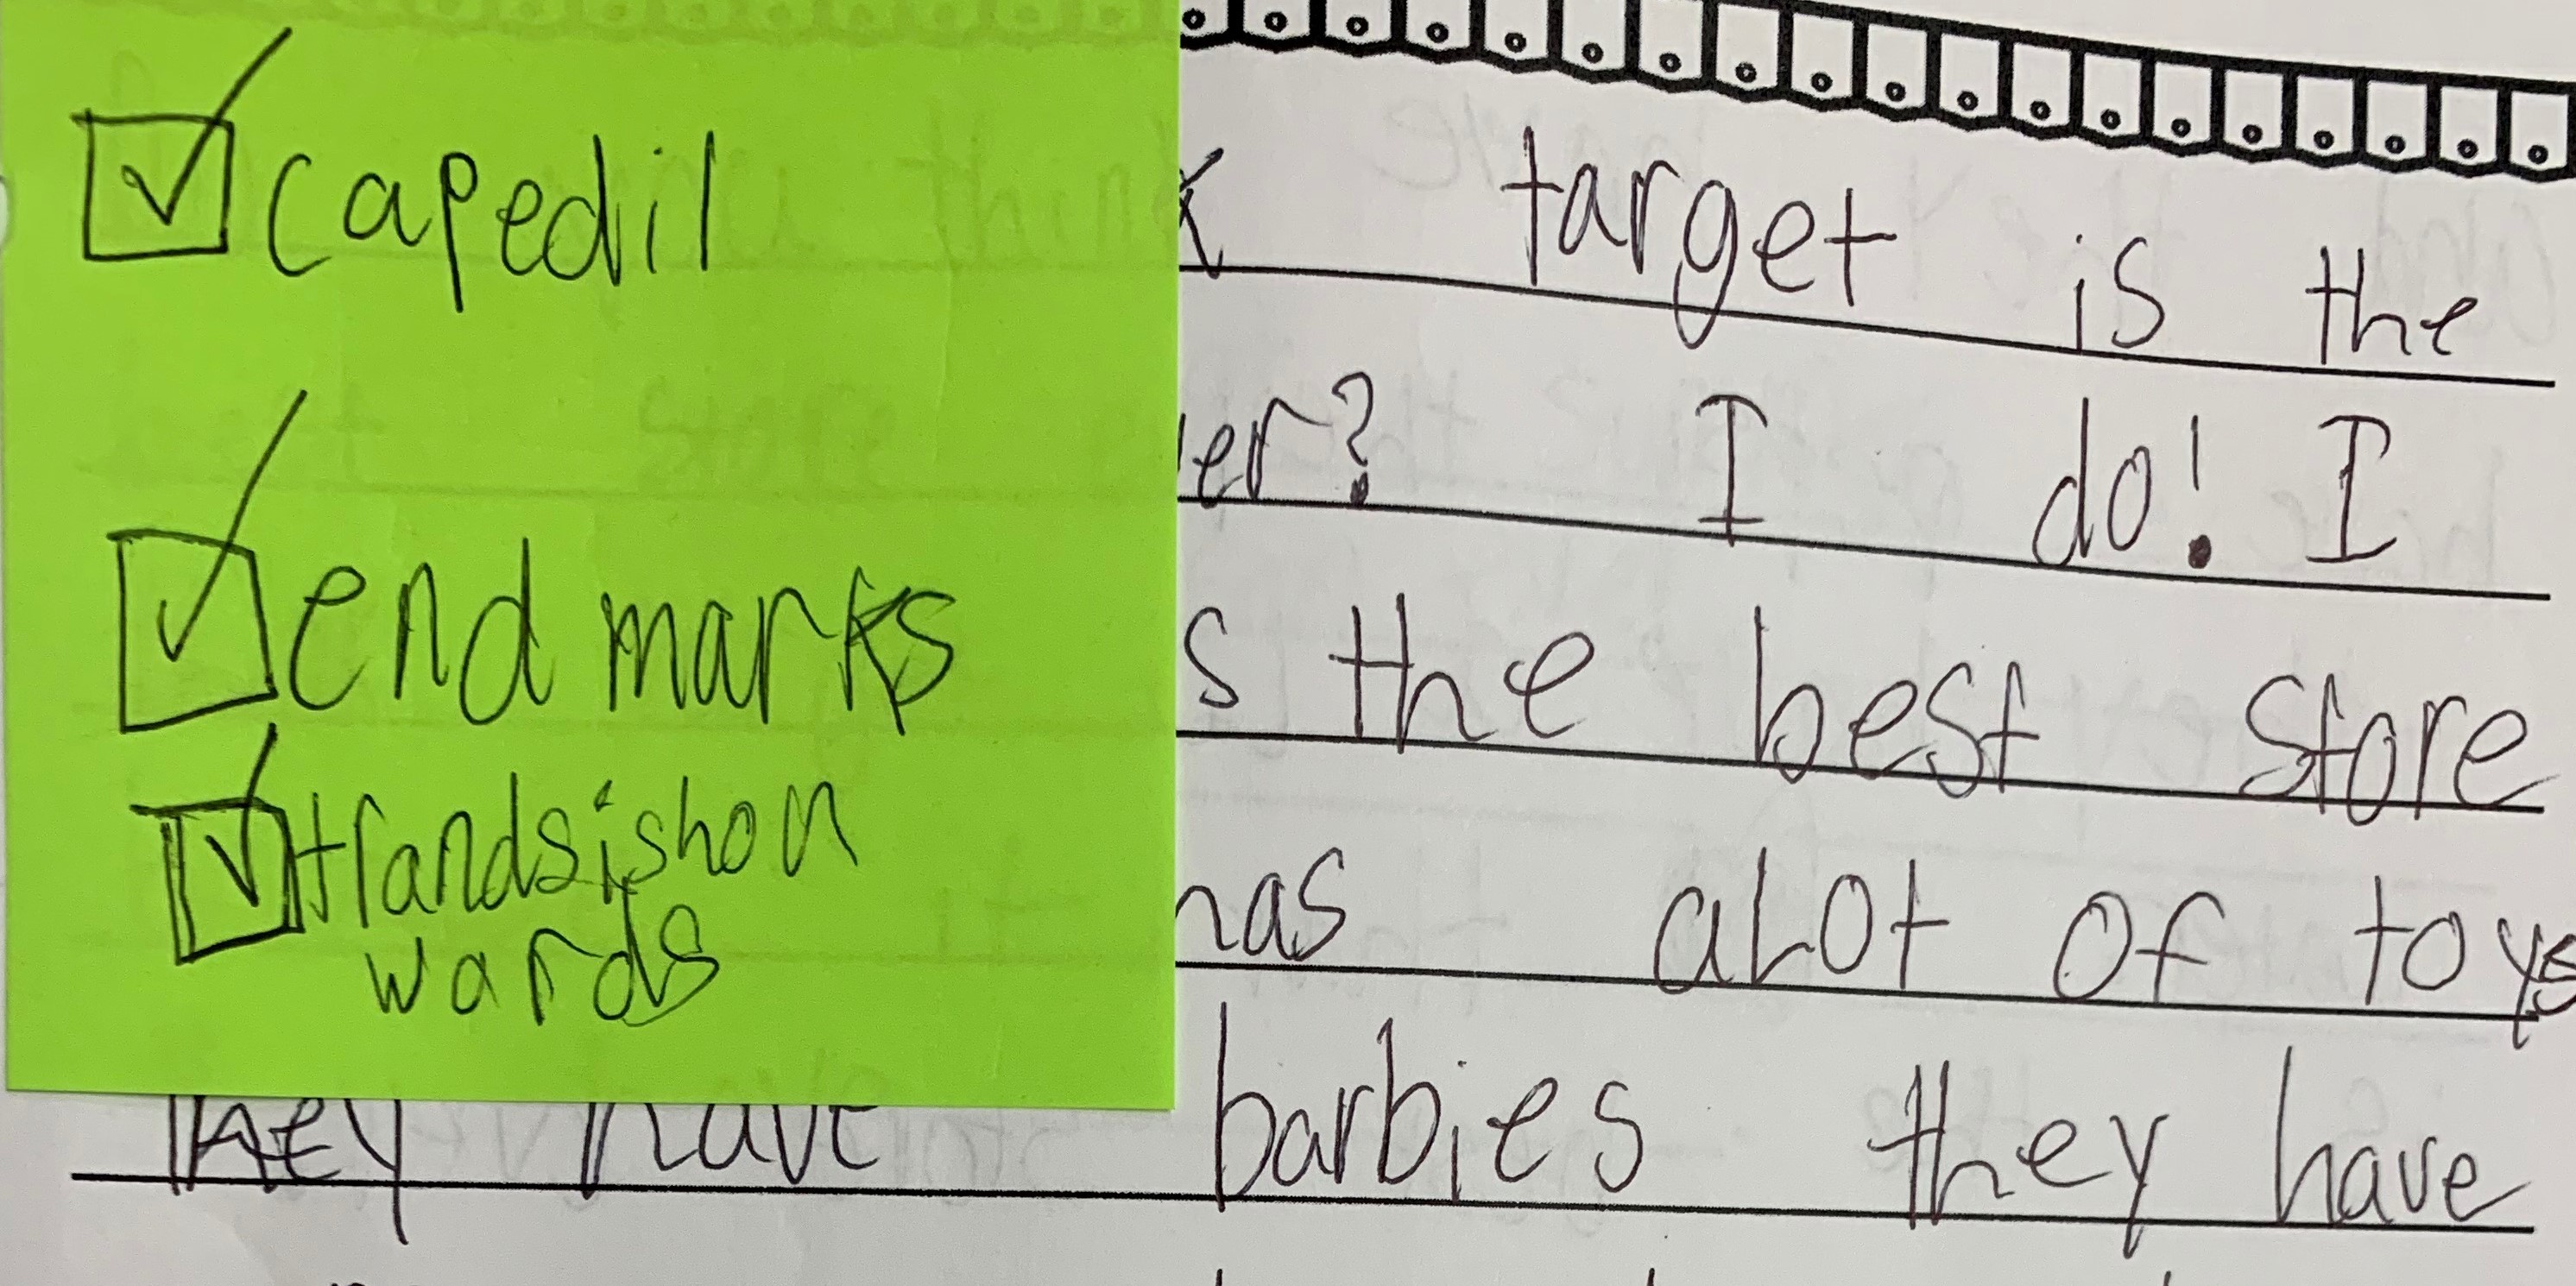 capedil
end marks
trandsishon
wards
target is the
er? I do! I
s the best store
has aLot of toys
They have barbies they have